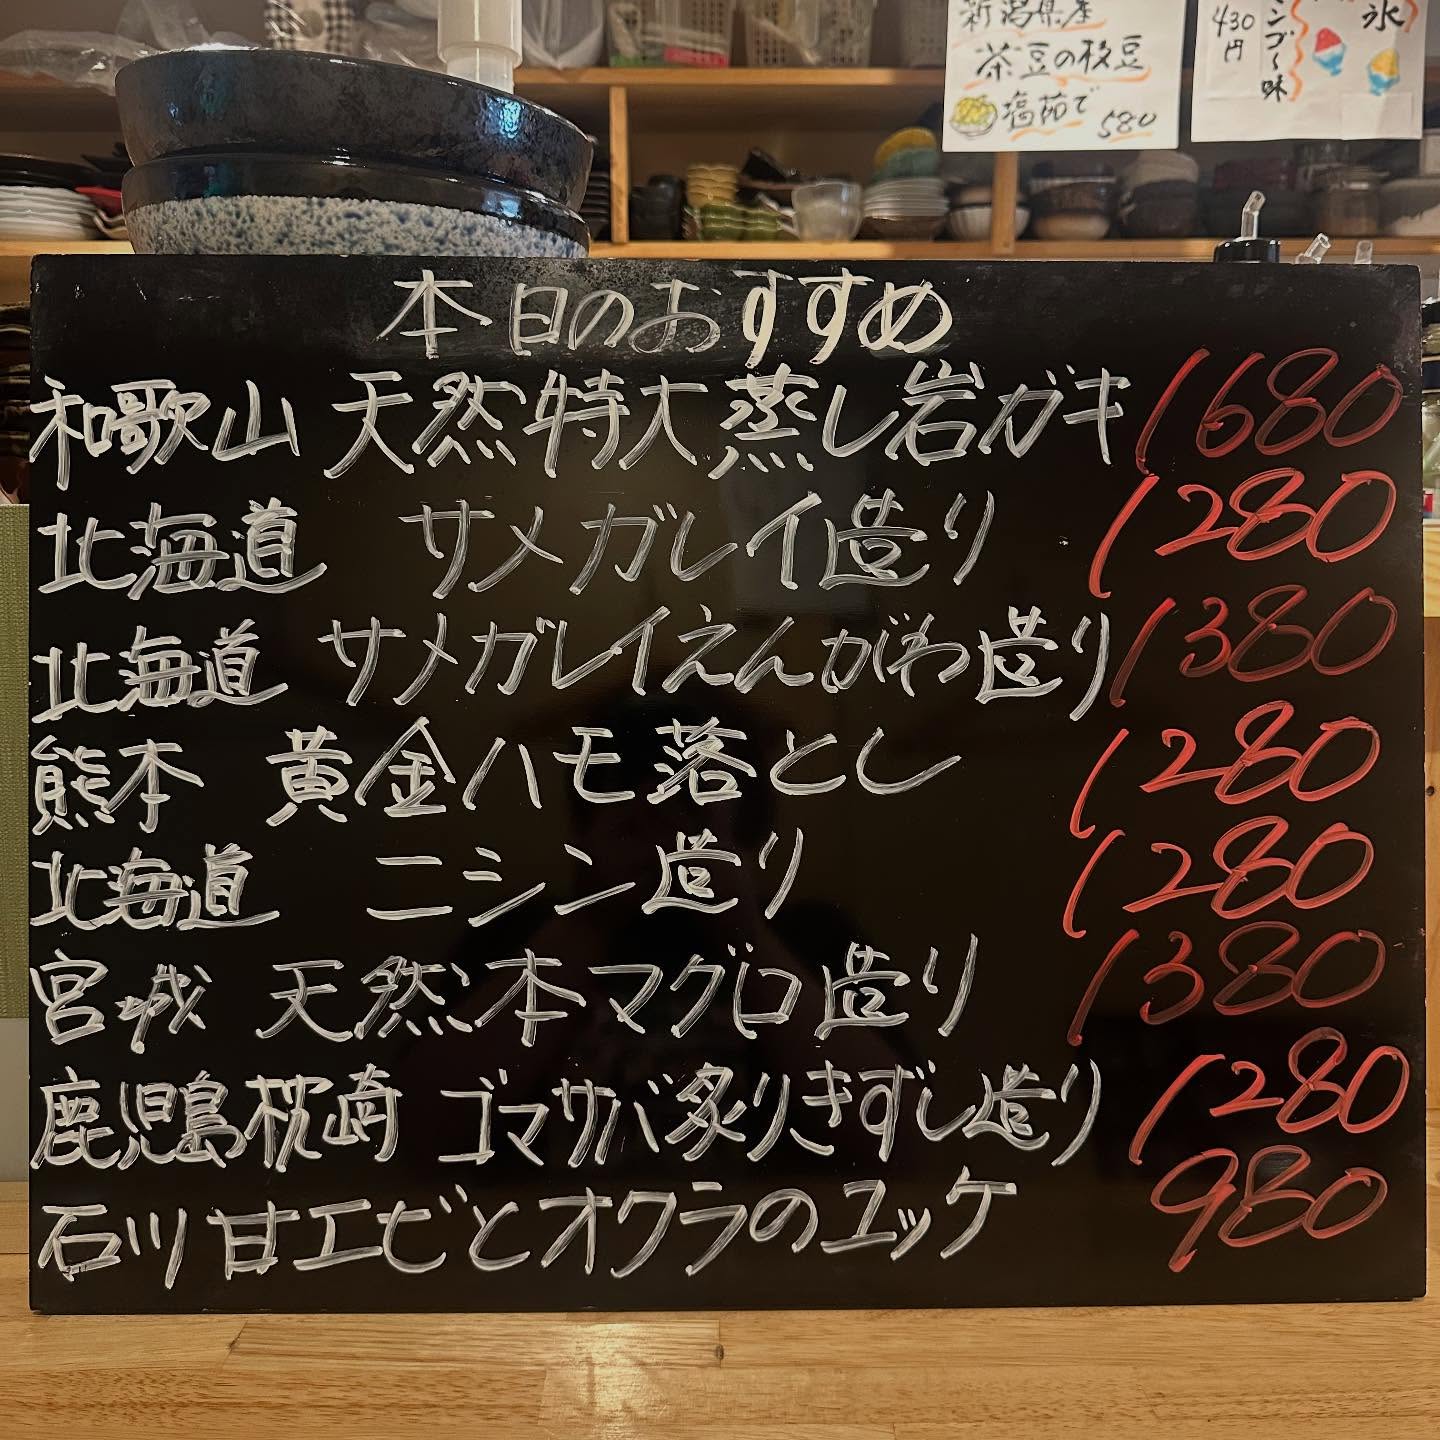 新潟県産
茶豆の枝豆
塩茹で
580
氷
ンゴ〜味
430
円
本日のおすすめ
和歌山 天然特大蒸し岩ガキ 1680
北海道 サメガレイ造り 1280
北海道 サメガレイえんがわ造り 1380
熊本 黄金ハモ落とし 1280
北海道 ニシン造り 1280
宮城 天然本マグロ造り 1380
鹿児島枕崎 ゴマサバ炙りきずし造り 1280
石川 甘エビとオクラのユッケ 980